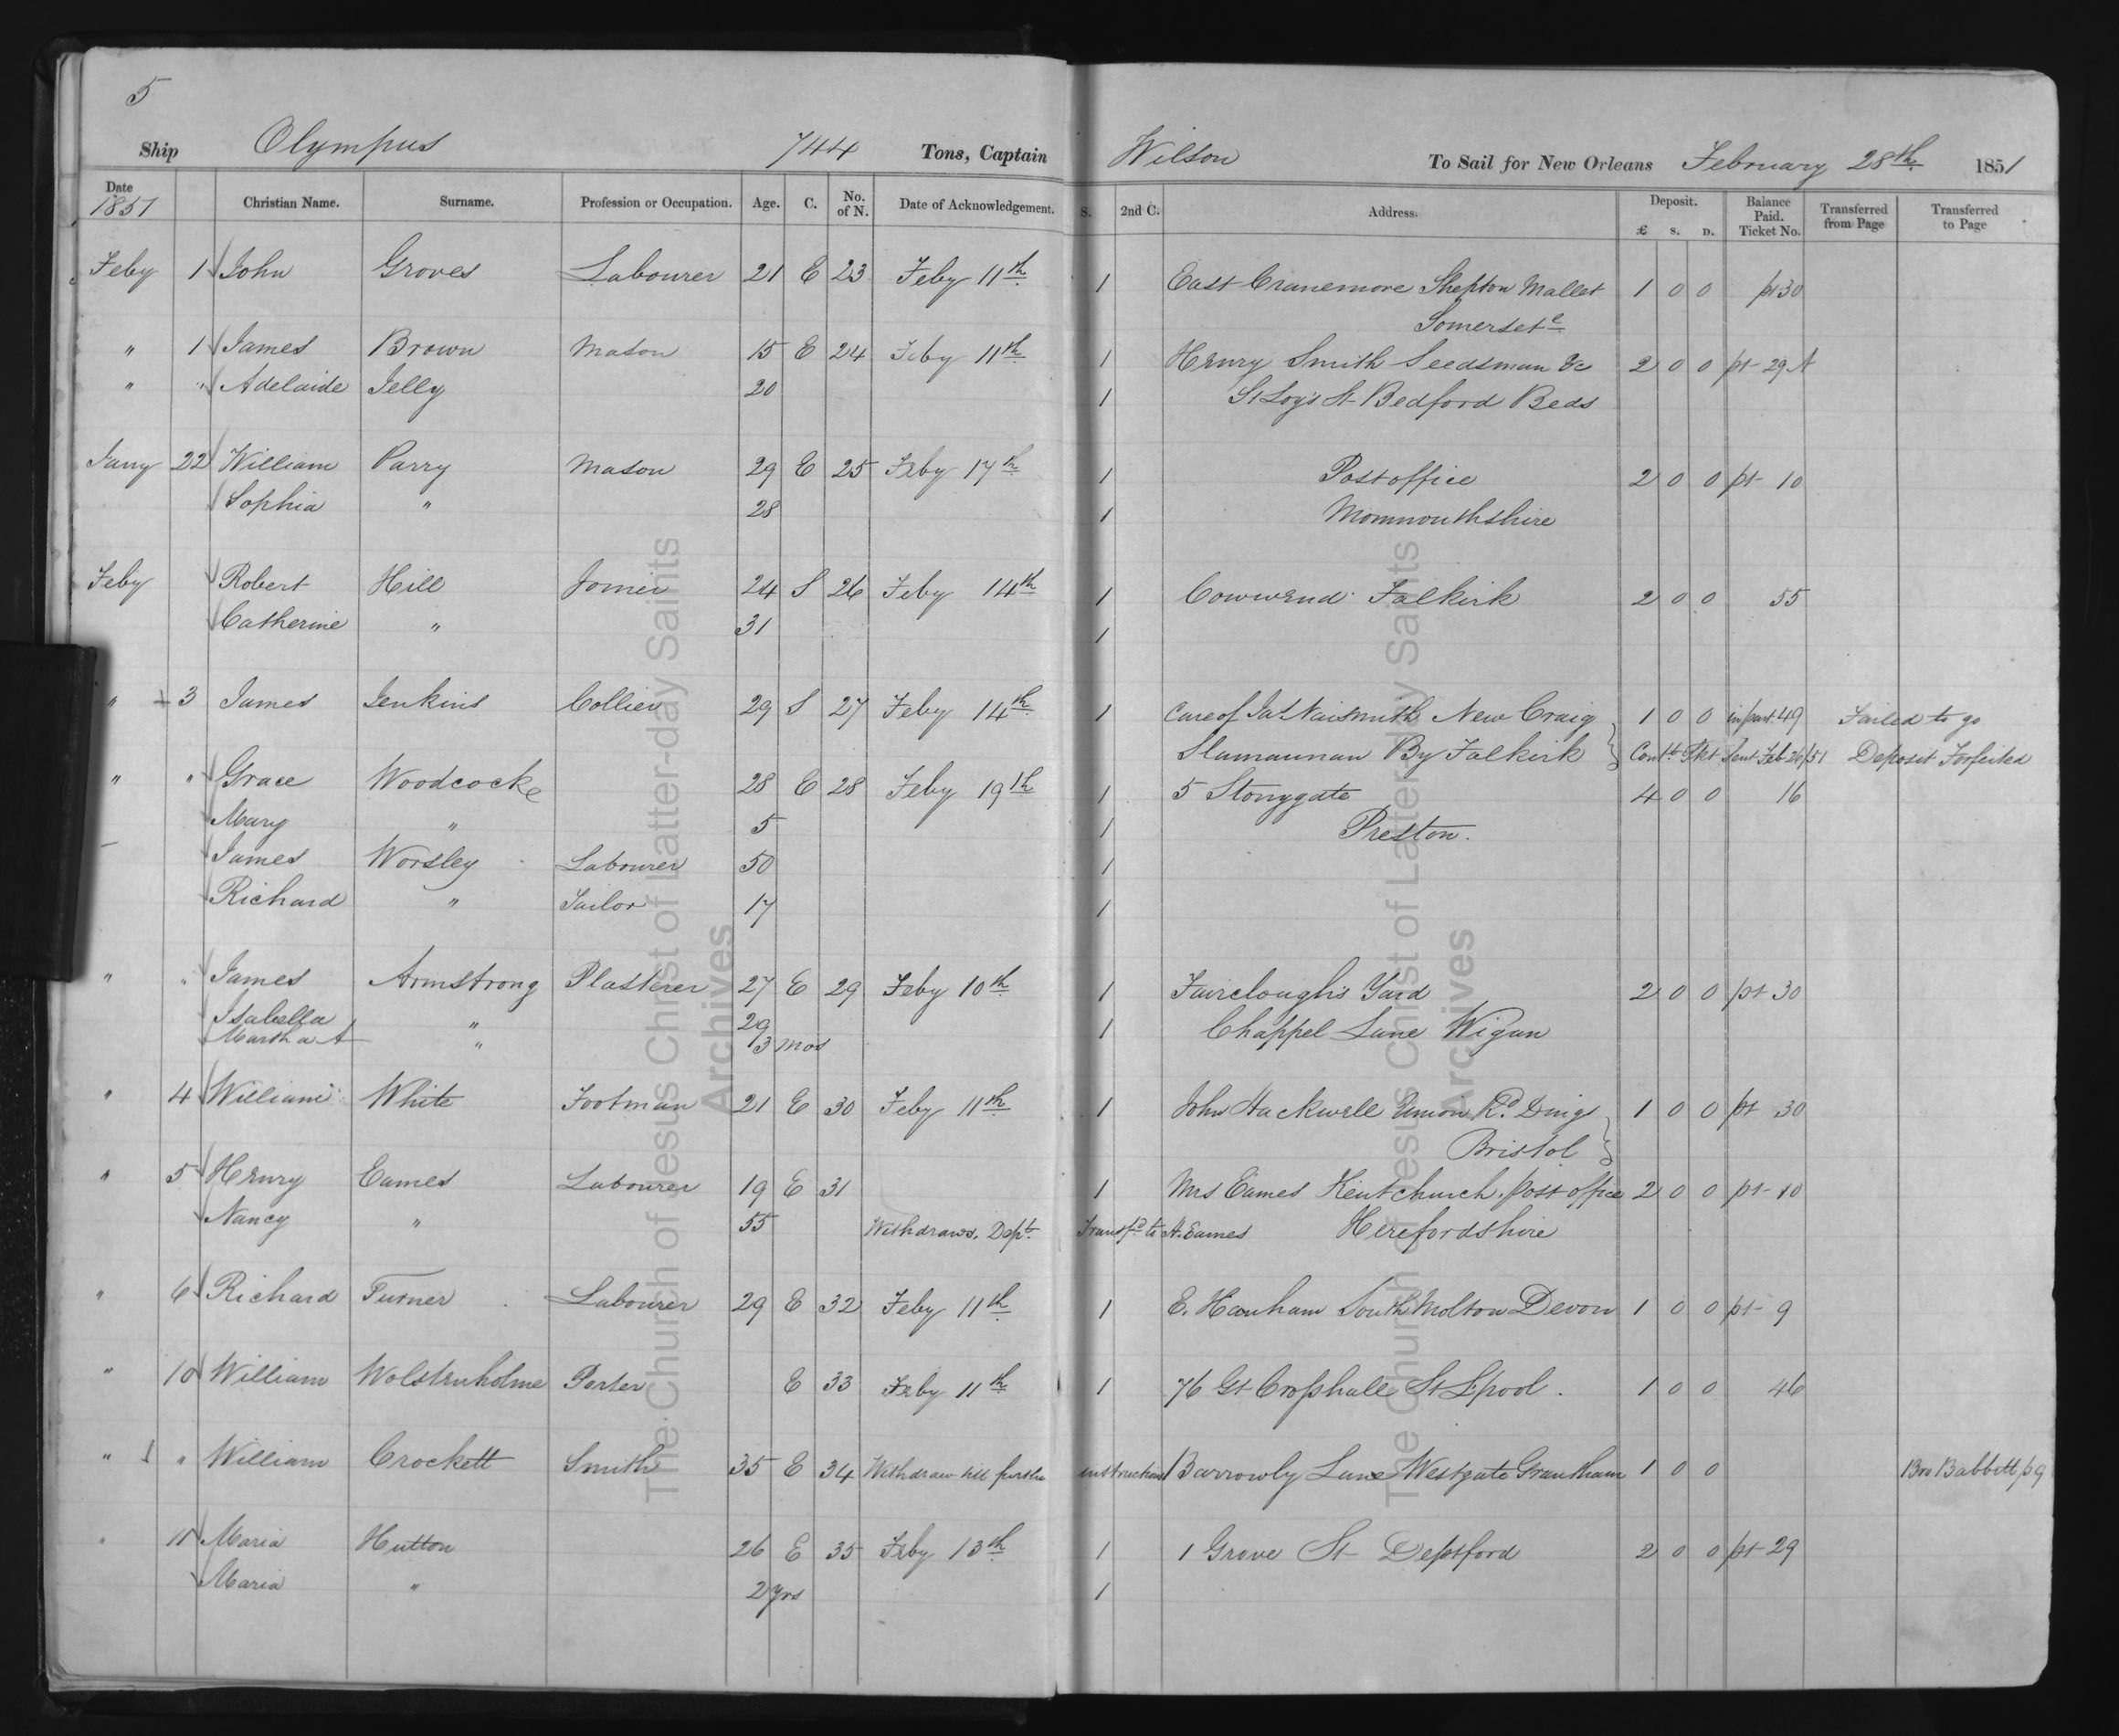 5
Ship Olympus 744 Tons, Captain Wilson To Sail for New Orleans February 28th 1851
Date 1851 Christian Name. Surname. Profession or Occupation. Age. C. No. of N. Date of Acknowledgement. S. 2nd C. Address. Deposit. £ S. D. Balance Paid. Ticket No. Transferred from Page Transferred to Page
Feby 1 John Groves Labourer 21 E 23 Feby 11th 1 East Cranemore Shepton Mallet 1 0 0 pt 30
Somersete
" 1 James Brown Mason 15 E 24 Feby 11th 1 Henry Smith Seedsman &c 2 0 0 pt 29 A
" " Adelaide Jelly 20 1 St Loys St Bedford Beds
Jany 22 William Parry Mason 29 E 25 Feby 17th 1 Post office 2 0 0 pt 10
Sophia " 28 1 Monmouthshire
Feby Robert Hill Joiner 24 S 26 Feby 14th 1 Cowwend Falkirk 2 0 0 55
Catherine " 31 1
" 3 James Jenkins Collier 29 S 27 Feby 14th 1 Care of Jas Naismith New Craig 1 0 0 in part 49 Failed to go
Slamannan By Falkirk Contt Tkt Sent Feb 26/51 Deposit Forfeited
" " Grace Woodcocke 28 E 28 Feby 19th 1 5 Stonygate 4 0 0 16
Mary " 5 1 Preston.
James Worsley Labourer 50 1
Richard " Tailor 17 1
" " James Armstrong Plasterer 27 E 29 Feby 10th 1 Fairclough's Yard 2 0 0 pt 30
Isabella " 29 1 Chappel Lane Wigan
Martha A " 3 mos
" 4 William White Footman 21 E 30 Feby 11th 1 John Hackwell Union Rd Dings 1 0 0 pt 30
Bristol
" 5 Henry Eames Labourer 19 E 31 1 Mrs Eames Kentchurch, post office 2 0 0 pt 10
Nancy " 55 Withdraws. Dept. Transfd to H. Eames Herefordshire
" 6 Richard Turner Labourer 29 E 32 Feby 11th 1 E. Hanham South Molton Devon 1 0 0 pt 9
" 10 William Wolstenholme Porter E 33 Feby 11th 1 76 Gt Crosshall St Lpool. 1 0 0 46
" " William Crockett Smith 35 E 34 Withdraw till further instructions Barrowby Lane Westgate Grantham 1 0 0 Bro Babbitt p 9
" 11 Maria Hutton 26 E 35 Feby 13th 1 1 Grove St Deptford 2 0 0 pt 29
Maria " 2 yrs 1
The Church of Jesus Christ of Latter-day Saints
Archives
The Church of Jesus Christ of Latter-day Saints
Archives